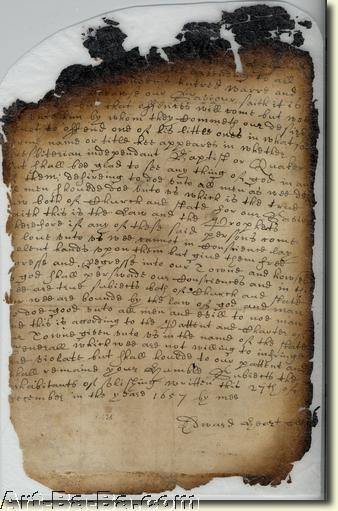 to all
hatred Warre and
our Saviour saith it is
that offences will come but woe
him by whom they Commeth our desire
not to offend one of his little ones in what
forme name or title hee appeares in whether
independant Baptist or Quaker
shall bee glad to see any thing of god in any
them desireing to doe unto all men as wee
men should doe unto us which is the true
law both of Church and state For our
saith this is the Law and the Prophets
Therefore if any of these said persons come
love unto us wee cannot in Conscience lay
violent hands upon them but give them free
Regresse into our Towne and howses
god shall perswade our Consciences and in
wee are true subjects both of Church and state
wee are bounde by the law of god and man
doe good unto all men and evill to noe
and this is according to the Pattent and Charter of
our Towne given unto us in the name of the states
Generall which wee are not willing to infringe
and violate but shall hould to our pattent and
shall remaine your Humble Subjects the
inhabitants of vlishing written this 27th of
December in the yeare 1657 by mee
Edward Heart
Art-Ba-Ba.com